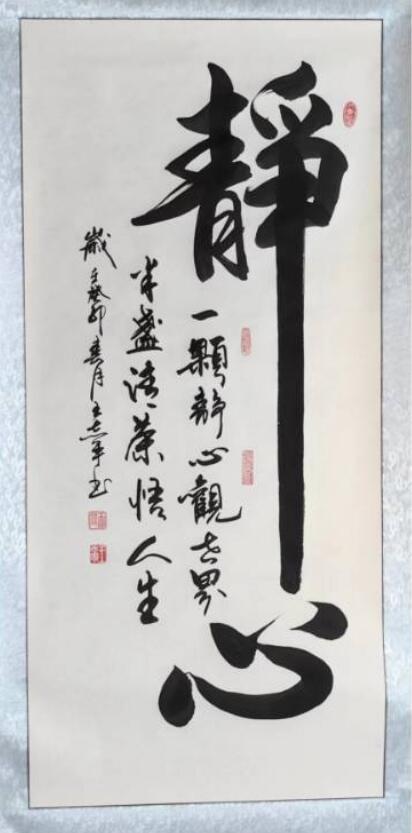 靜心
一顆靜心觀世界
半盞清茶悟人生
歲于癸卯春月王志军书